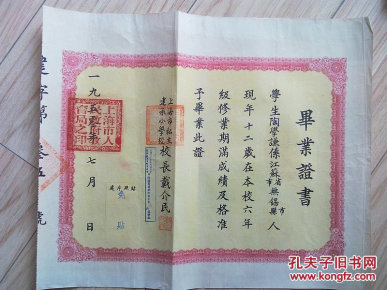 畢業證書
學生陶學謙係江蘇省無錫縣市人
現年十二歲在本校六年
級修業期滿成績及格准
予畢業此證
上海市私立
建承小學校
校長戴介民
站起序建
免貼
上海市人
民政府教
育局之印
一九五
七月
日
建字第
號
孔夫子旧书网